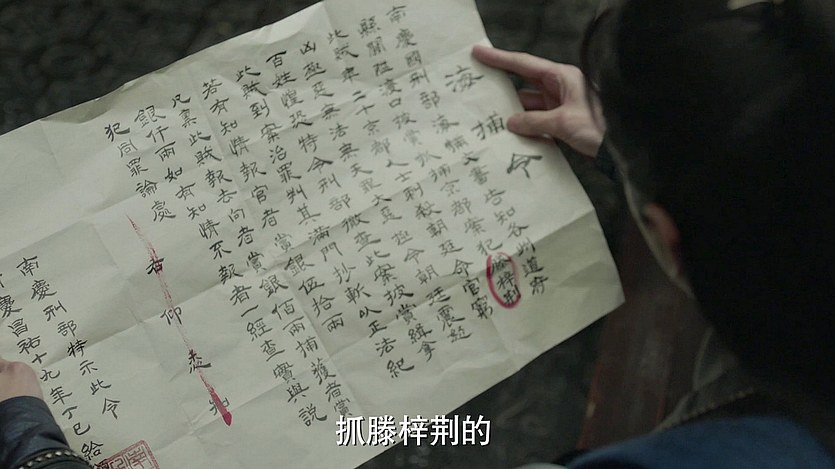 海捕令
南慶國刑部海捕文書告知各州道府
縣關隘渡口披賞緝捕京都案犯滕梓荊
此賊年二十京都人士刺殺朝廷命官窮
凶極惡無法無天罪大惡極令朝廷震怒
百姓惶恐特令刑部徹查此案披賞緝拿
此賊到案治罪判其滿門抄斬以正法紀
若有知情報官者賞銀伍拾兩
凡稟此賊報去向者賞銀佰兩捕獲者賞
銀仟兩如有知情不報者一經查實與說
犯同罪論處
右仰悉知
南慶刑部特示此令
南慶昌祐十九年丁巳給
抓滕梓荆的